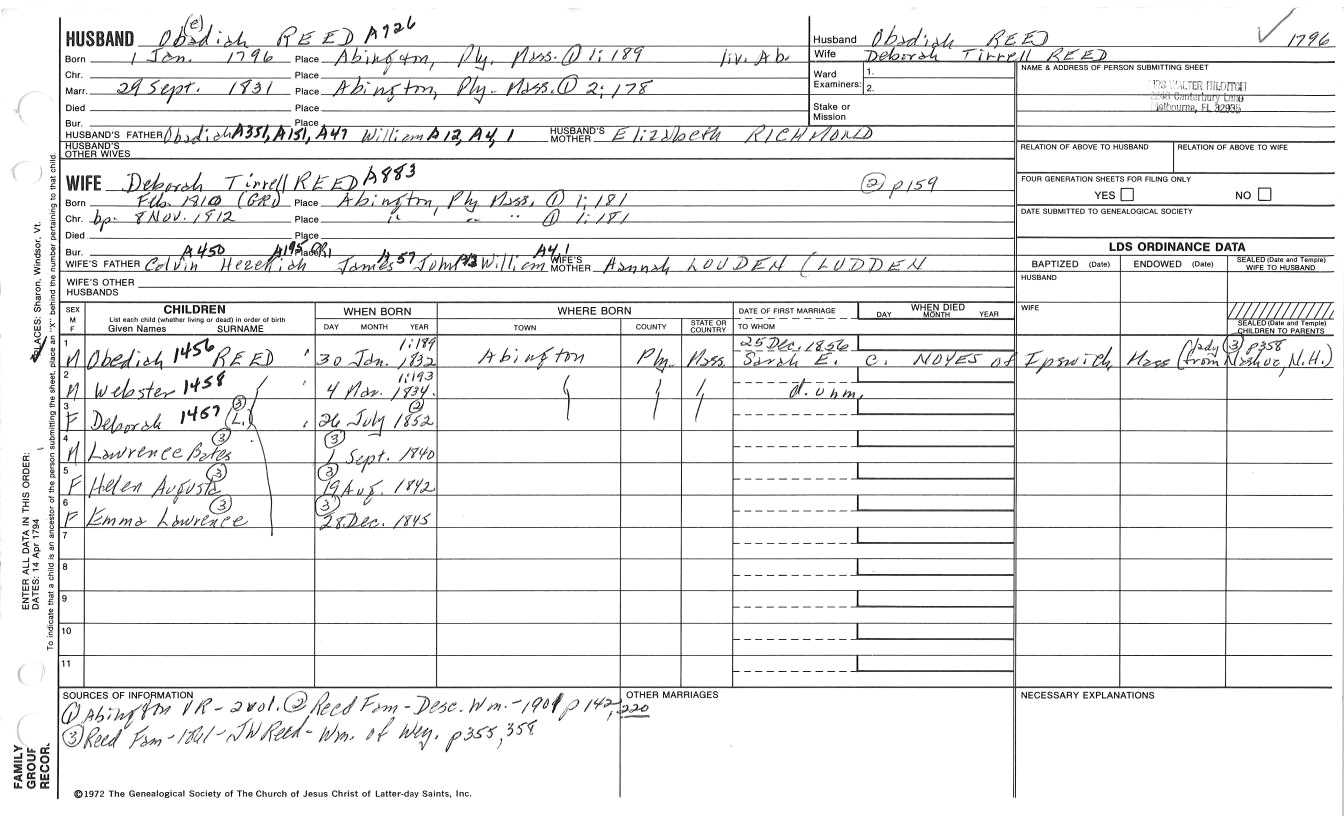 HUSBAND Ob(e)adiah REED A726
Born 1 Jan. 1796 Place Abington, Ply. Mass. ① 1:189 liv. Ab.
Chr. Place
Marr. 29 Sept. 1831 Place Abington, Ply. Mass. ① 2:178
Died Place
Bur. Place
HUSBAND'S FATHER Obadiah A351, A151, A47 William A12, A4, 1 HUSBAND'S MOTHER Elizabeth RICHMOND
HUSBAND'S OTHER WIVES
WIFE Deborah Tirrell REED A883 ② p159
Born Feb. 1810 (GR1) Place Abington, Ply Mass. ① 1:181
Chr. bp. 8 Nov. 1812 Place " " " ① 1:181
Died Place
Bur. Place
A450 A195 A57 A13 A4, 1
WIFE'S FATHER Calvin Hezekiah James John William WIFE'S MOTHER Hannah LOUDEN (LUDDEN
WIFE'S OTHER HUSBANDS
Husband Obadiah REED 1796
Wife Deborah Tirrell REED
Ward Examiners: 1.
2.
Stake or Mission
NAME & ADDRESS OF PERSON SUBMITTING SHEET
WALTER
Canterbury
Melbourne, FL 32935
RELATION OF ABOVE TO HUSBAND RELATION OF ABOVE TO WIFE
FOUR GENERATION SHEETS FOR FILING ONLY
YES NO
DATE SUBMITTED TO GENEALOGICAL SOCIETY
LDS ORDINANCE DATA
BAPTIZED (Date) ENDOWED (Date) SEALED (Date and Temple) WIFE TO HUSBAND
HUSBAND
WIFE
SEALED (Date and Temple) CHILDREN TO PARENTS
SEX M F
CHILDREN
List each child (whether living or dead) in order of birth
Given Names SURNAME
WHEN BORN
DAY MONTH YEAR
WHERE BORN
TOWN COUNTY STATE OR COUNTRY
DATE OF FIRST MARRIAGE
TO WHOM
WHEN DIED
DAY MONTH YEAR
1 M Obediah 1456 REED 30 Jan. 1832 1:189 Abington Ply. Mass. 25 Dec. 1856 Sarah E. C. NOYES of Ipswich, Mass (lady ③ p358 from Nashua, N.H.)
2 M Webster 1458 " 4 Mar. 1834. 1:193 d. unm.
3 F Deborah 1457 (L.) ③ " 26 July 1852 ②
4 M Lawrence Bates ③ ③ 1 Sept. 1840
5 F Helen Augusta ③ ③ 19 Aug. 1842
6 F Emma Lawrence ③ ③ 28 Dec. 1845
7
8
9
10
11
SOURCES OF INFORMATION
① Abington VR - 2 vol. ② Reed Fam - Desc. Wm. - 1901 p 142, 220
③ Reed Fam - 1861 - JW Reed - Wm. of Wey. p355, 358
OTHER MARRIAGES
NECESSARY EXPLANATIONS
©1972 The Genealogical Society of The Church of Jesus Christ of Latter-day Saints, Inc.
FAMILY GROUP RECOR.
ENTER ALL DATA IN THIS ORDER:
DATES: 14 Apr 1794
PLACES: Sharon, Windsor, Vt.
To indicate that a child is an ancestor of the person submitting the sheet, place an "X" behind the number pertaining to that child.